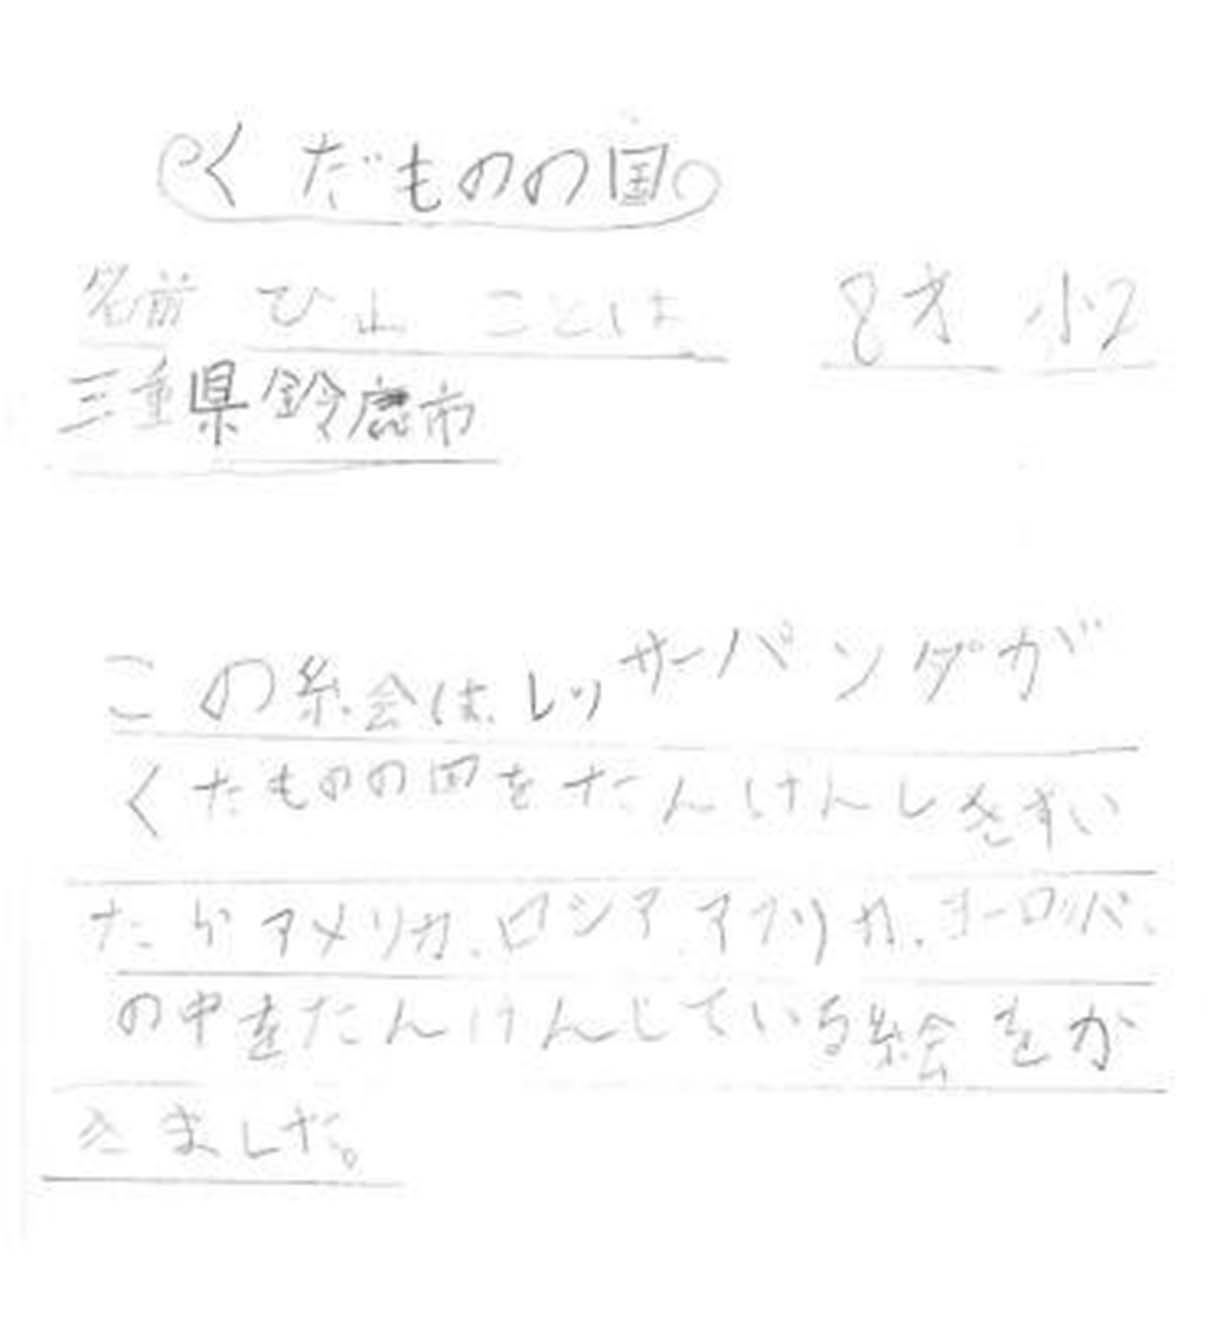 くだものの国
名前 ひ山 ことは 8才 小2
三重県鈴鹿市
この絵会は、レッサーパンダが
くたものの国をたんけんし
たり アメリカ、ロシア、アフリカ、ヨーロッパ、
の中をたんけんしている絵をか
きました。